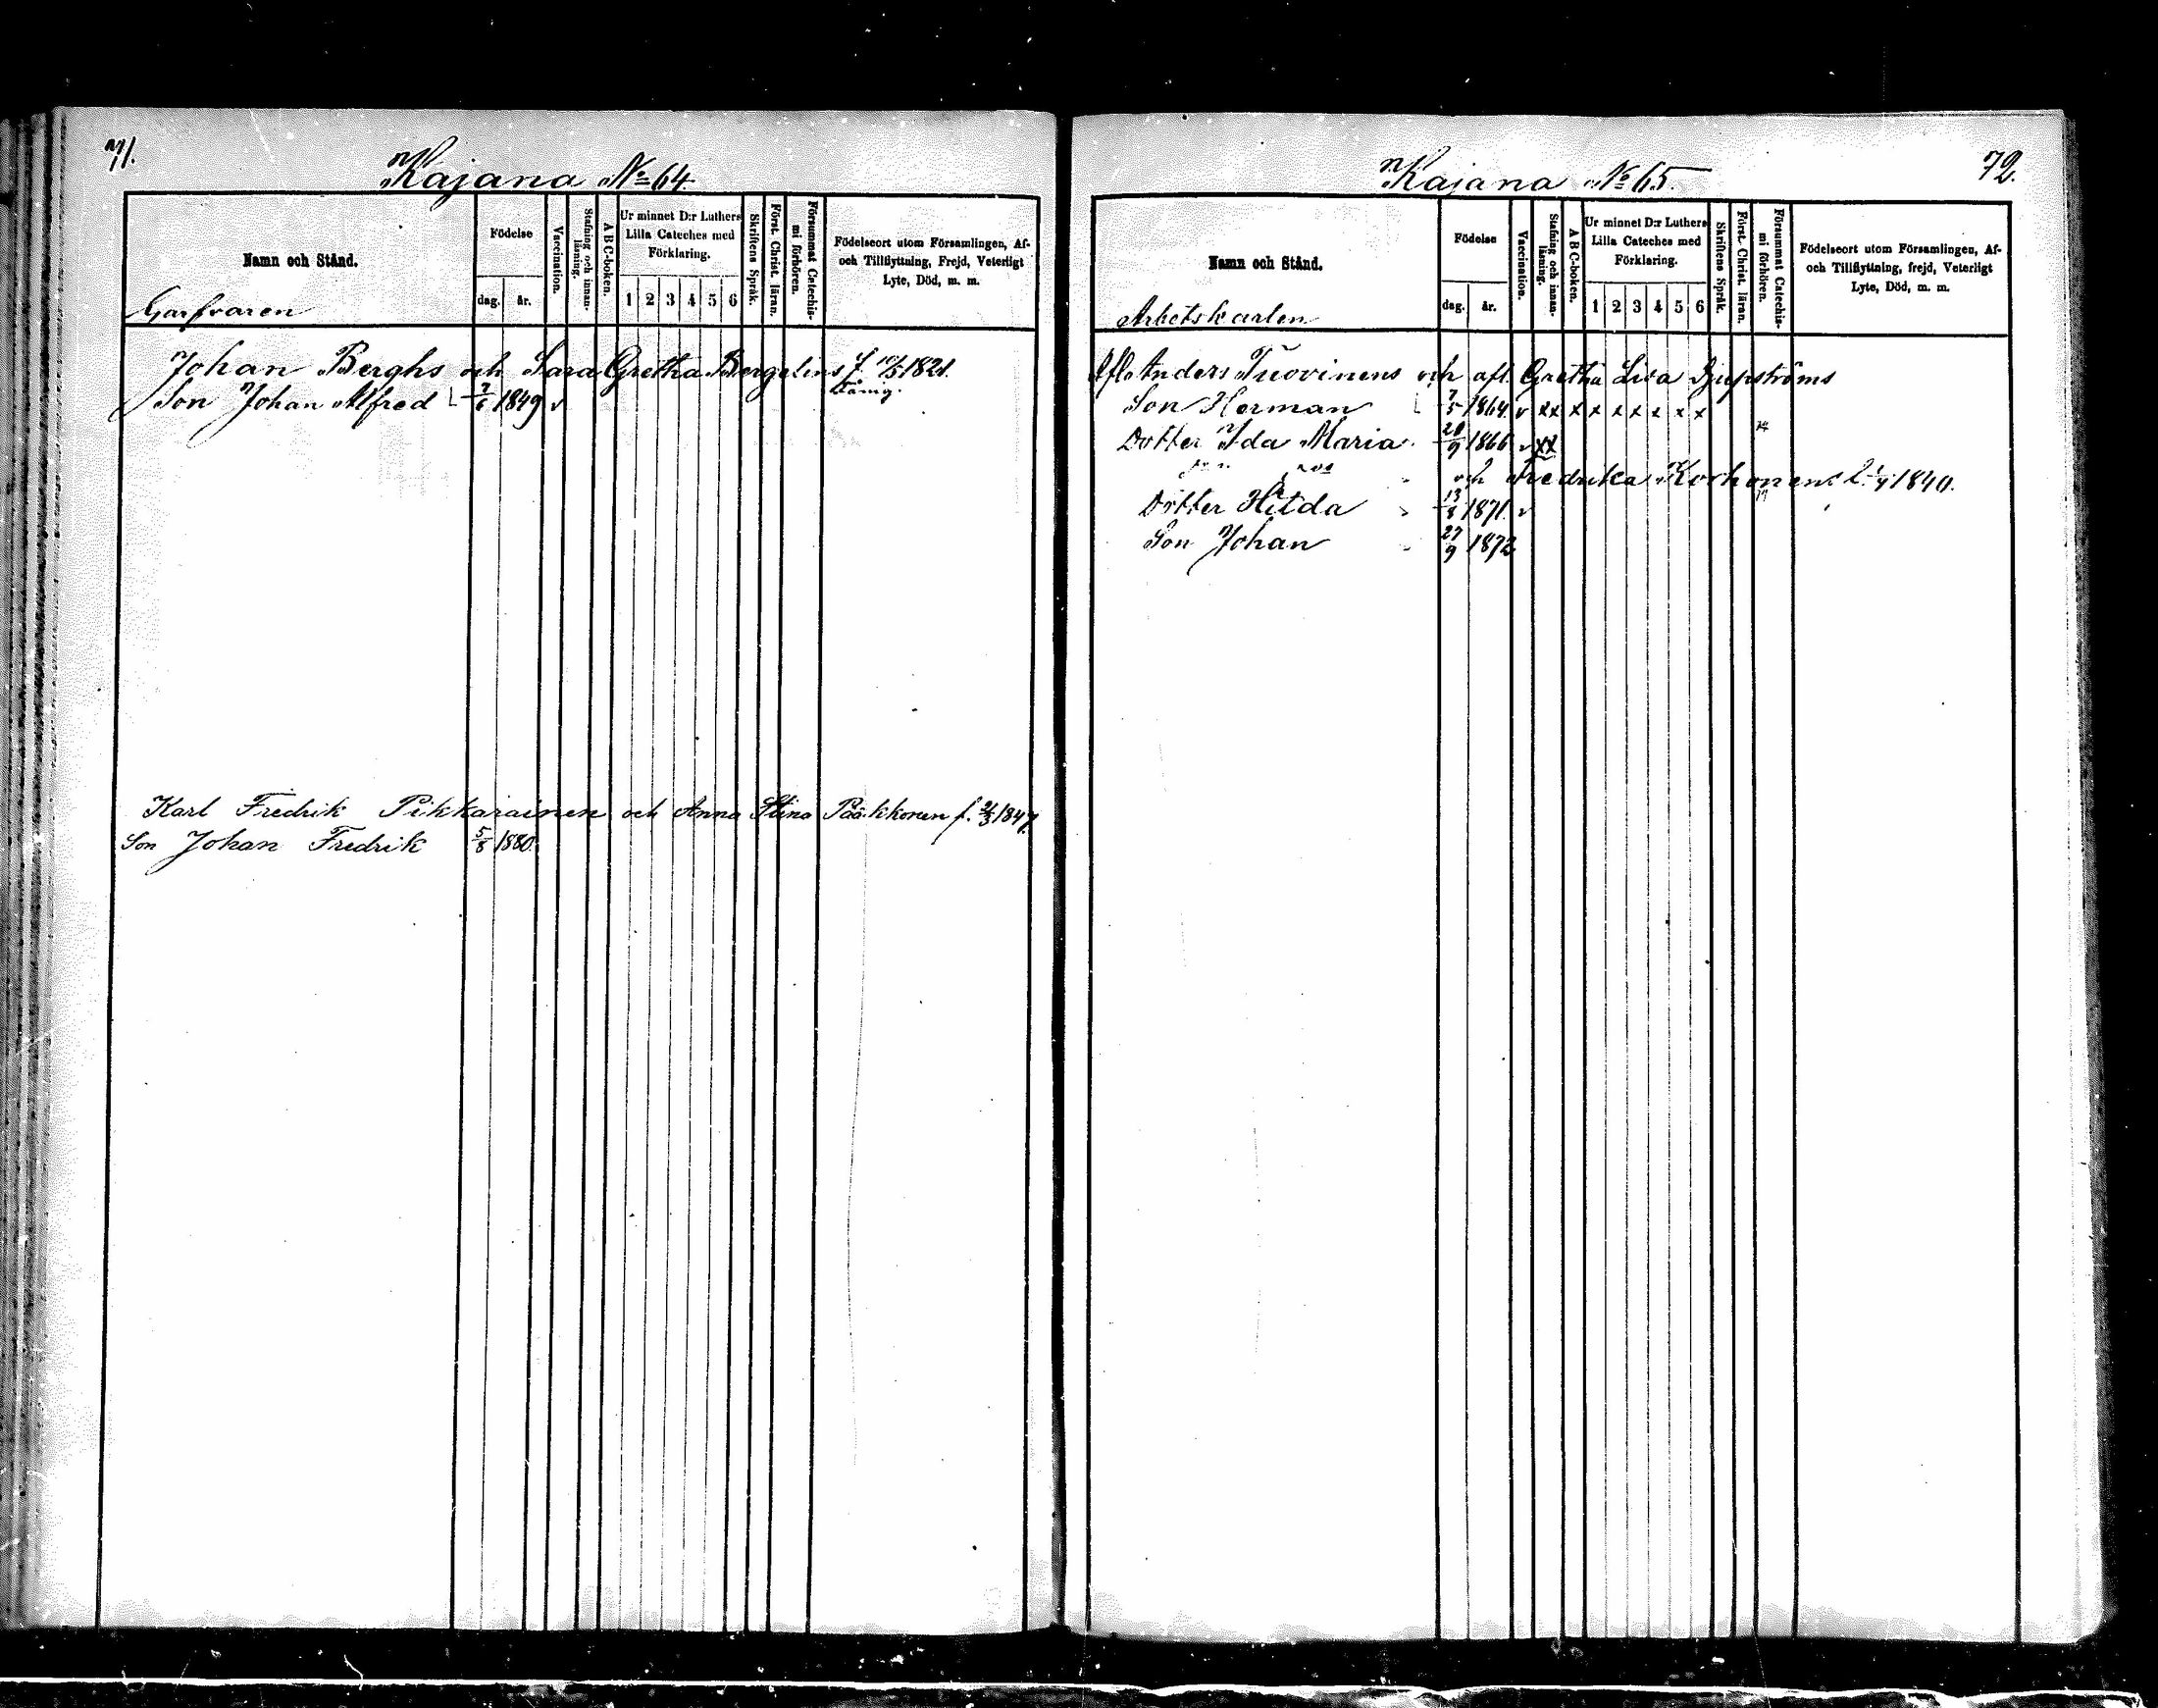 71.
Kajana No 64.
Namn och Stånd.
Födelse
dag.
år.
Vaccination.
Stafning och innanläsning.
A B C-boken.
Ur minnet D:r Luthers
Lilla Cateches med
Förklaring.
1 2 3 4 5 6
Skriftens Språk.
Först. Christ. läran.
Försummat Catechismi förhören.
Födelseort utom Församlingen, Af-
och Tillflyttning, Frejd, Veterligt
Lyte, Död, m. m.
Garfvaren
Johan Berghs och Sara Gretha Bergelins f. 10/5 1821.
Son Johan Alfred 7/6 1849 v
Karl Fredrik Pikkarainen och Anna Stina Pääkkonen f. 2/3 1847
Son Johan Fredrik 5/8 1880.
72.
Kajana No 65.
Namn och Stånd.
Födelse
dag.
år.
Vaccination.
Stafning och innanläsning.
A B C-boken.
Ur minnet D:r Luthers
Lilla Cateches med
Förklaring.
1 2 3 4 5 6
Skriftens Språk.
Först. Christ. läran.
Försummat Catechismi förhören.
Födelseort utom Församlingen, Af-
och Tillflyttning, frejd, Veterligt
Lyte, Död, m. m.
Arbetskarlen
Afl. Anders Tuovinens och afl. Gretha Lisa Djupströms
Son Herman 7/5 1864 v xx x x x x x x x
Dotter Ida Maria 20/9 1866 v xx
och Fredrika Korhonens 1840.
Dotter Hilda 13/8 1871 v
Son Johan 27/9 1872